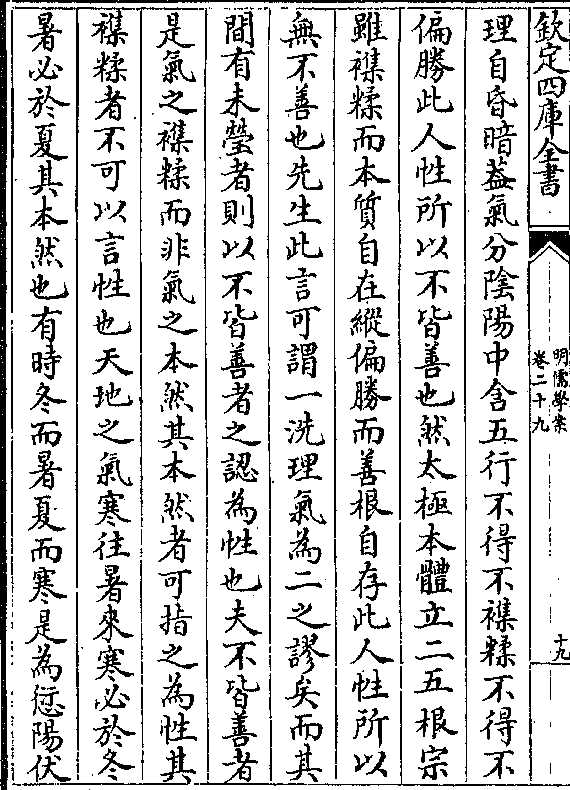 欽定四庫全書
明儒學案
卷二十九
十九
理自昏暗葢氣分陰陽中含五行不得不襍糅不得不
偏勝此人性所以不皆善也然太極本體立二五根宗
雖襍糅而本質自在縱偏勝而善根自存此人性所以
無不善也先生此言可謂一洗理氣為二之謬矣而其
間有未瑩者則以不皆善者之認為性也夫不皆善者
是氣之襍糅而非氣之本然其本然者可指之為性其
襍糅者不可以言性也天地之氣寒往暑來寒必於冬
暑必於夏其本然也有時冬而暑夏而寒是為愆陽伏